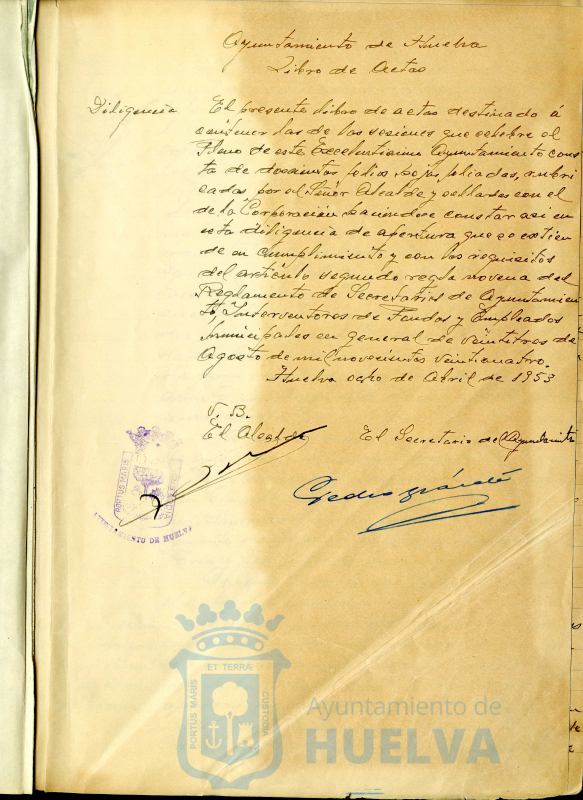 Ayuntamiento de Huelva
Libro de Actas
Diligencia
El presente libro de actas destinado á
contener las de las sesiones que celebre el
Pleno de este Excelentisimo Ayuntamiento cons
ta de doscientos folios, hojas foliadas, rubri
cadas por el Señor Alcalde y sellados con el
de la Corporación haciendose constar asi en
esta diligencia de apertura que se extien
de en cumplimiento y con los requisitos
del articulo segundo regla novena del
Reglamento de Secretarios de Ayuntamien
to, Interventores de Fondos y Empleados
Municipales en general de veintitres de
Agosto de mil novecientos veinticuatro.
Huelva ocho de Abril de 1953
V. B.
El Alcalde
El Secretario del Ayuntamiento
Pedro
PORTUS MARIS
CUSTODIA
AYUNTAMIENTO DE HUELVA
ET TERRÆ
PORTUS MARIS
CUSTODIA
Ayuntamiento de
HUELVA